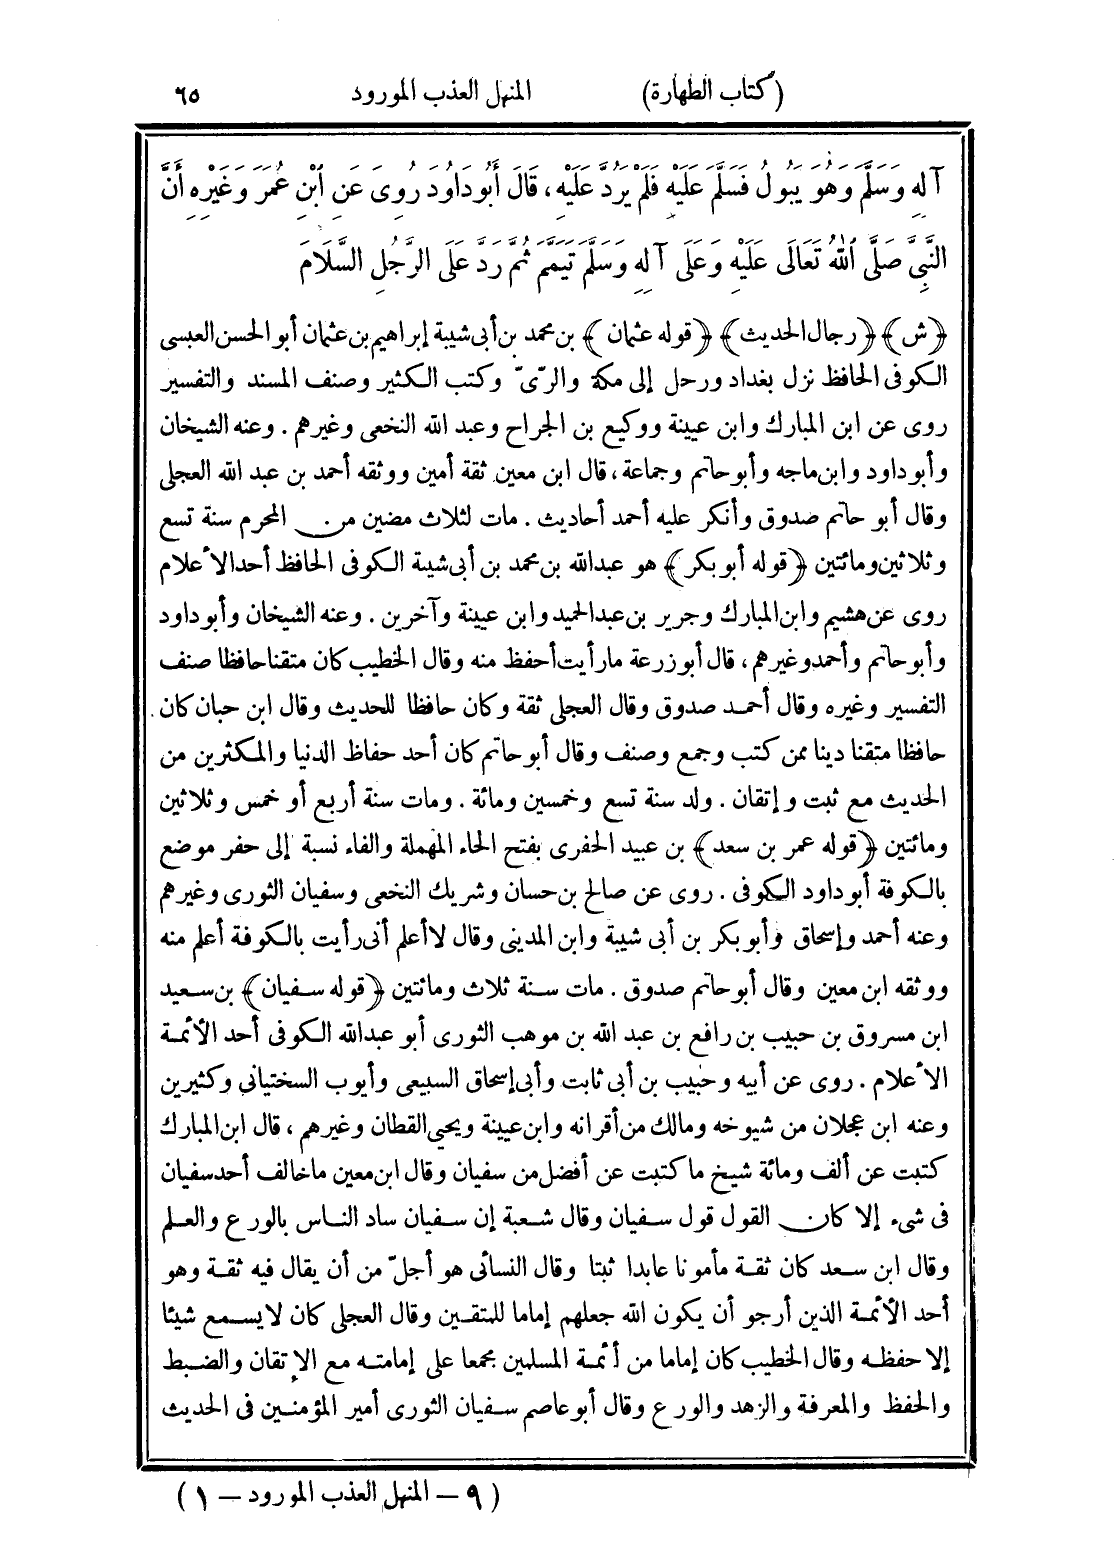 (كتاب الطهارة) المنهل العذب المورود ٦٥
آلِهِ وَسَلَّمَ وَهُوَ يَبُولُ فَسَلَّمَ عَلَيْهِ فَلَمْ يَرُدَّ عَلَيْهِ ، قَالَ أَبُو دَاوُدَ رُوِىَ عَنِ ٱبْنِ عُمَرَ وَغَيْرِهِ أَنَّ
النَّبِيَّ صَلَّى ٱللهُ تَعَالَى عَلَيْهِ وَعَلَى آلِهِ وَسَلَّمَ تَيَمَّمَ ثُمَّ رَدَّ عَلَى الرَّجُلِ السَّلَامَ
﴿ش﴾ ﴿رجال الحديث﴾ ﴿قوله عثمان﴾ بن محمد بن أبى شيبة إبراهيم بن عثمان أبو الحسن العبسى
الكوفى الحافظ نزل بغداد ورحل إلى مكة والرّىّ وكتب الكثير وصنف المسند والتفسير
روى عن ابن المبارك وابن عيينة ووكيع بن الجراح وعبد الله النخعى وغيرهم . وعنه الشيخان
وأبو داود وابن ماجه وأبو حاتم وجماعة ، قال ابن معين ثقة أمين ووثقه أحمد بن عبد الله العجلى
وقال أبو حاتم صدوق وأنكر عليه أحمد أحاديث . مات لثلاث مضين من المحرم سنة تسع
وثلاثين ومائتين ﴿قوله أبو بكر﴾ هو عبدالله بن محمد بن أبى شيبة الكوفى الحافظ أحد الأعلام
روى عن هشيم وابن المبارك وجرير بن عبدالحميد وابن عيينة وآخرين . وعنه الشيخان وأبو داود
وأبو حاتم وأحمد وغيرهم ، قال أبو زرعة ما رأيت أحفظ منه وقال الخطيب كان متقنا حافظا صنف
التفسير وغيره وقال أحمد صدوق وقال العجلى ثقة وكان حافظا للحديث وقال ابن حبان كان
حافظا متقنا دينا ممن كتب وجمع وصنف وقال أبو حاتم كان أحد حفاظ الدنيا والمكثرين من
الحديث مع ثبت وإتقان . ولد سنة تسع وخمسين ومائة . ومات سنة أربع أو خمس وثلاثين
ومائتين ﴿قوله عمر بن سعد﴾ بن عبيد الحفرى بفتح الحاء المهملة والفاء نسبة إلى حفر موضع
بالكوفة أبو داود الكوفى . روى عن صالح بن حسان وشريك النخعى وسفيان الثورى وغيرهم
وعنه أحمد وإسحاق وأبو بكر بن أبى شيبة وابن المدينى وقال لا أعلم أنى رأيت بالكوفة أعلم منه
ووثقه ابن معين وقال أبو حاتم صدوق . مات سنة ثلاث ومائتين ﴿قوله سفيان﴾ بن سعيد
ابن مسروق بن حبيب بن رافع بن عبد الله بن موهب الثورى أبو عبدالله الكوفى أحد الأئمة
الأعلام . روى عن أبيه وحبيب بن أبى ثابت وأبى إسحاق السبيعى وأيوب السختيانى وكثيرين
وعنه ابن عجلان من شيوخه ومالك من أقرانه وابن عيينة ويحيى القطان وغيرهم ، قال ابن المبارك
كتبت عن ألف ومائة شيخ ما كتبت عن أفضل من سفيان وقال ابن معين ما خالف أحد سفيان
فى شىء إلا كان القول قول سفيان وقال شعبة إن سفيان ساد الناس بالورع والعلم
وقال ابن سعد كان ثقة مأمونا عابدا ثبتا وقال النسائى هو أجلّ من أن يقال فيه ثقة وهو
أحد الأئمة الذين أرجو أن يكون الله جعلهم إماما للمتقين وقال العجلى كان لا يسمع شيئا
إلا حفظه وقال الخطيب كان إماما من أئمة المسلمين مجمعا على إمامته مع الإتقان والضبط
والحفظ والمعرفة والزهد والورع وقال أبو عاصم سفيان الثورى أمير المؤمنين فى الحديث
( ٩ – المنهل العذب المورود – ١ )